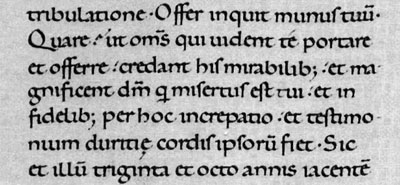 tribulatione · Offer inquit munus tuū ·
Quare ·' ut om̄s qui uident té portare
et offerre · credant his mirabilib; · et ma-
gnificent dm̄ q misertus est tui · et in
fidelib; per hoc increpatio · et testimo-
nium duritię cordis ipsorū fiet · Sic
et illū triginta et octo annis iacentē